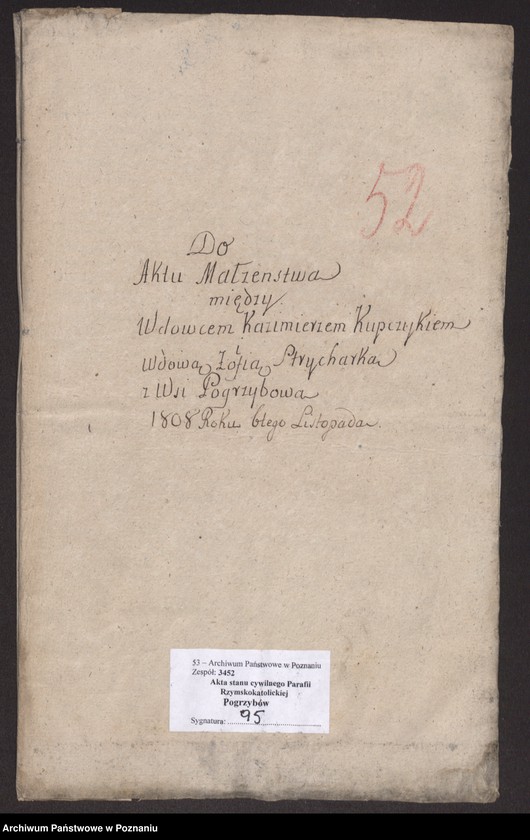 52
Do
Aktu Małżenstwa
między
Wdowcem Kazimierzem Kupczykiem
wdową Zofią Strycharka
z Wsi Pogrzybowa
1808 Roku 6tego Listopada.
53 – Archiwum Państwowe w Poznaniu
Zespół: 3452
Akta stanu cywilnego Parafii
Rzymskokatolickiej
Pogrzybów
Sygnatura: 95
Archiwum Państwowe w Poznaniu